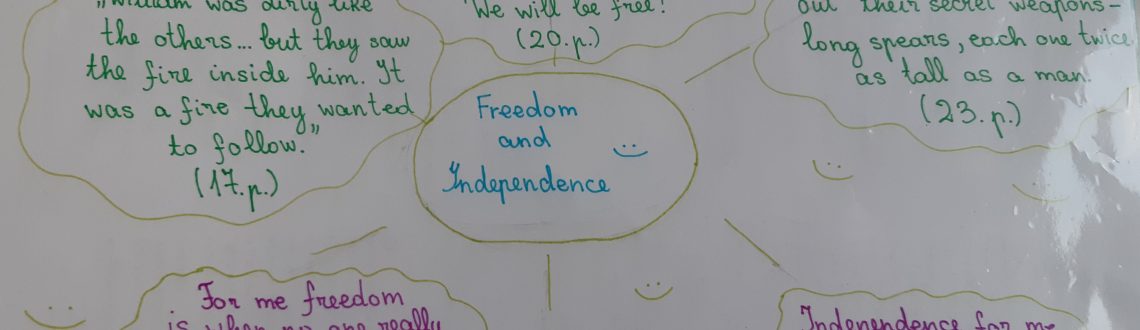 „William was dirty like
the others... but they saw
the fire inside him. It
was a fire they wanted
to follow.”
(17.p.)
We will be free!
(20.p.)
out their secret weapons-
long spears, each one twice
as tall as a man.
(23.p.)
Freedom
and
Independence
For me freedom
is when no one really
Independence for me